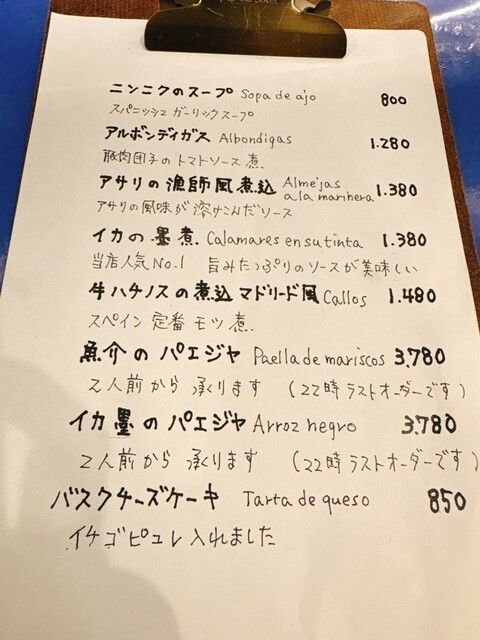 ニンニクのスープ Sopa de ajo 800
スパニッシュ ガーリックスープ
アルボンディガス Albondigas 1.280
豚肉団子のトマトソース煮
アサリの漁師風煮込 Almejas a la marinera 1.380
アサリの風味が溶けこんだソース
イカの墨煮 Calamares en su tinta 1.380
当店人気No.1 旨みたっぷりのソースが美味しい
牛ハチノスの煮込マドリード風 Callos 1.480
スペイン定番モツ煮
魚介のパエジャ Paella de mariscos 3.780
2人前から承ります (22時ラストオーダーです)
イカ墨のパエジャ Arroz negro 3.780
2人前から承ります (22時ラストオーダーです)
バスクチーズケーキ Tarta de queso 850
イチゴピュレ入れました